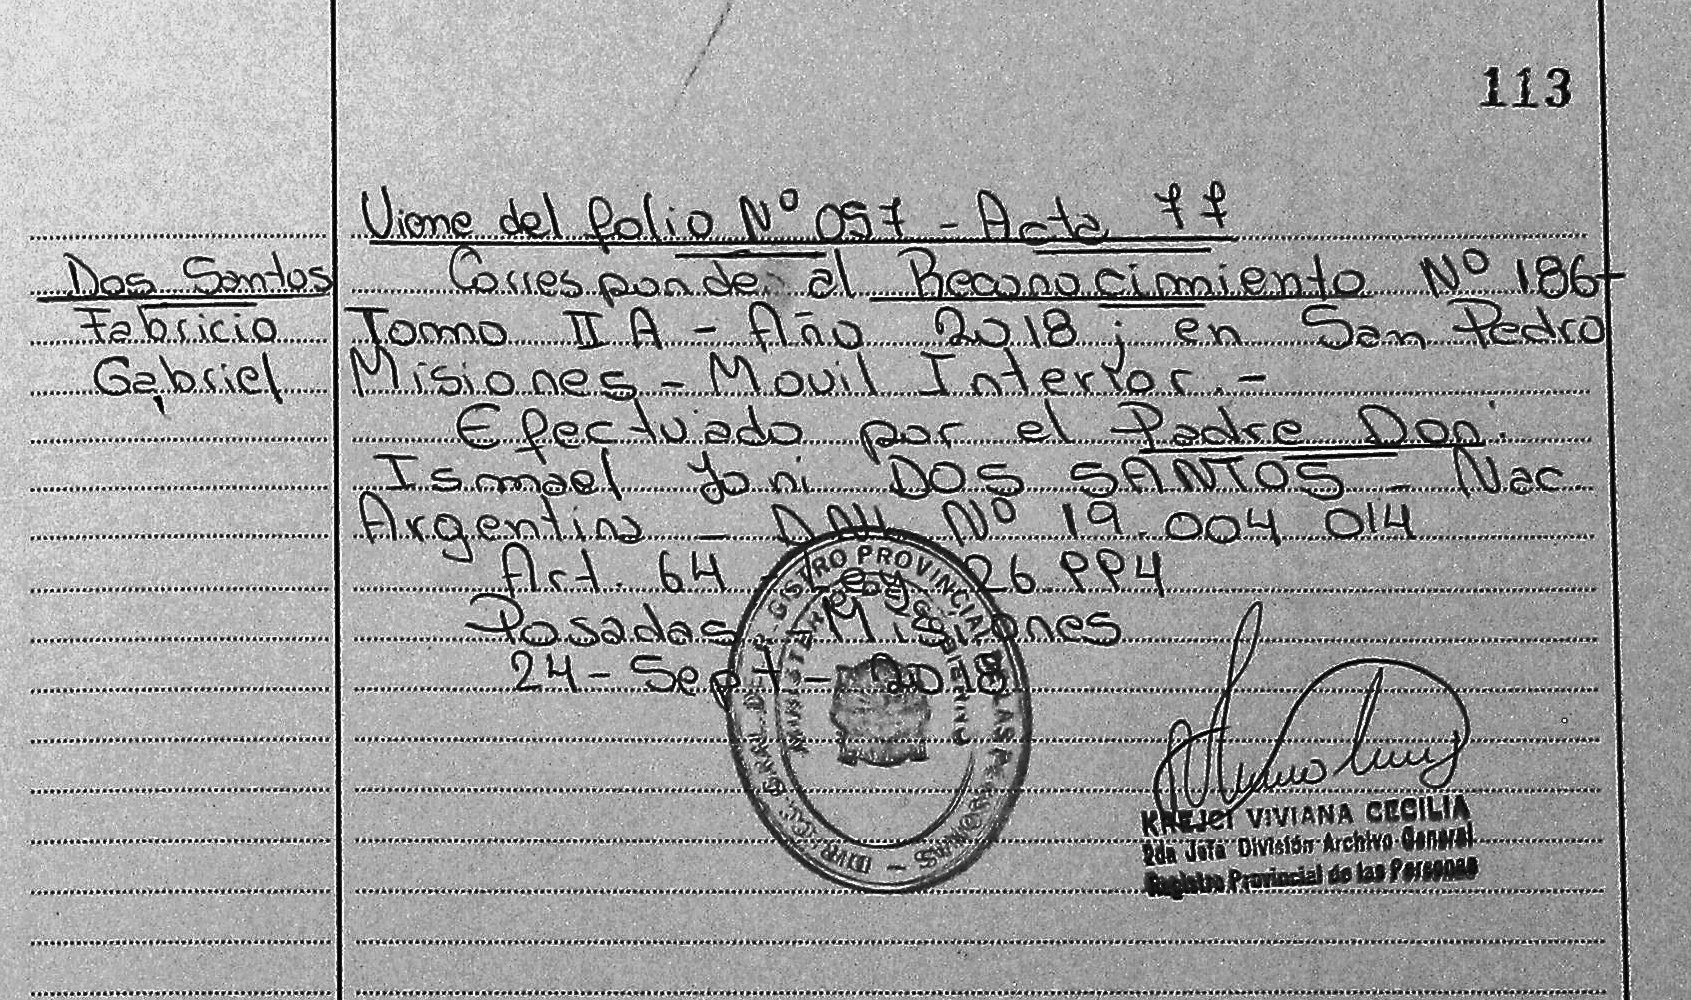 113
Viene del folio Nº 057 - Acta 77
Dos Santos
Fabricio
Gabriel
Corresponde al Reconocimiento Nº 186-
Tomo II A - Año 2018; en San Pedro
Misiones - Movil Interior.-
Efectuado por el Padre Don:
Ismael Joni DOS SANTOS - Nac
Argentina - DNI. Nº 19.004 014
Art. 64 - Ley 26.994
Posadas - Misiones
24 - Sept - 2018
DIR. GRAL. DEL REGISTRO PROVINCIAL DE LAS PERSONAS -
MINISTERIO DE GOBIERNO
KREJCI VIVIANA CECILIA
2da Jefa División Archivo General
Registro Provincial de las Personas